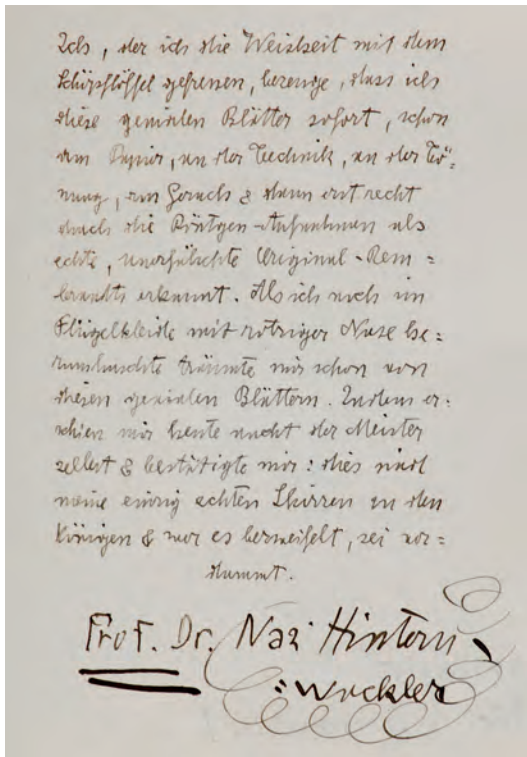 Ich, der ich die Weisheit mit dem
Schöpflöffel gefressen, bezeuge, dass ich
diese genialen Blätter sofort, schon
am Papier, an der Technik, an der Tö-
nung, am Geruch & dann erst recht
durch die Röntgen-Aufnahmen als
echte, unverfälschte Original-Rem=
brandts erkannt. Als ich noch im
Flügelkleide mit rotziger Nase he=
rumhuschte träumte mir schon von
diesen genialen Blättern. Zudem er=
schien mir heute nacht der Meister
selbst & bestätigte mir: dies sind
meine einzig echten Skizzen zu den
Königen & wer es bezweifelt, sei ver=
dammt.
Prof. Dr. Nazi Hintern
=Wackler